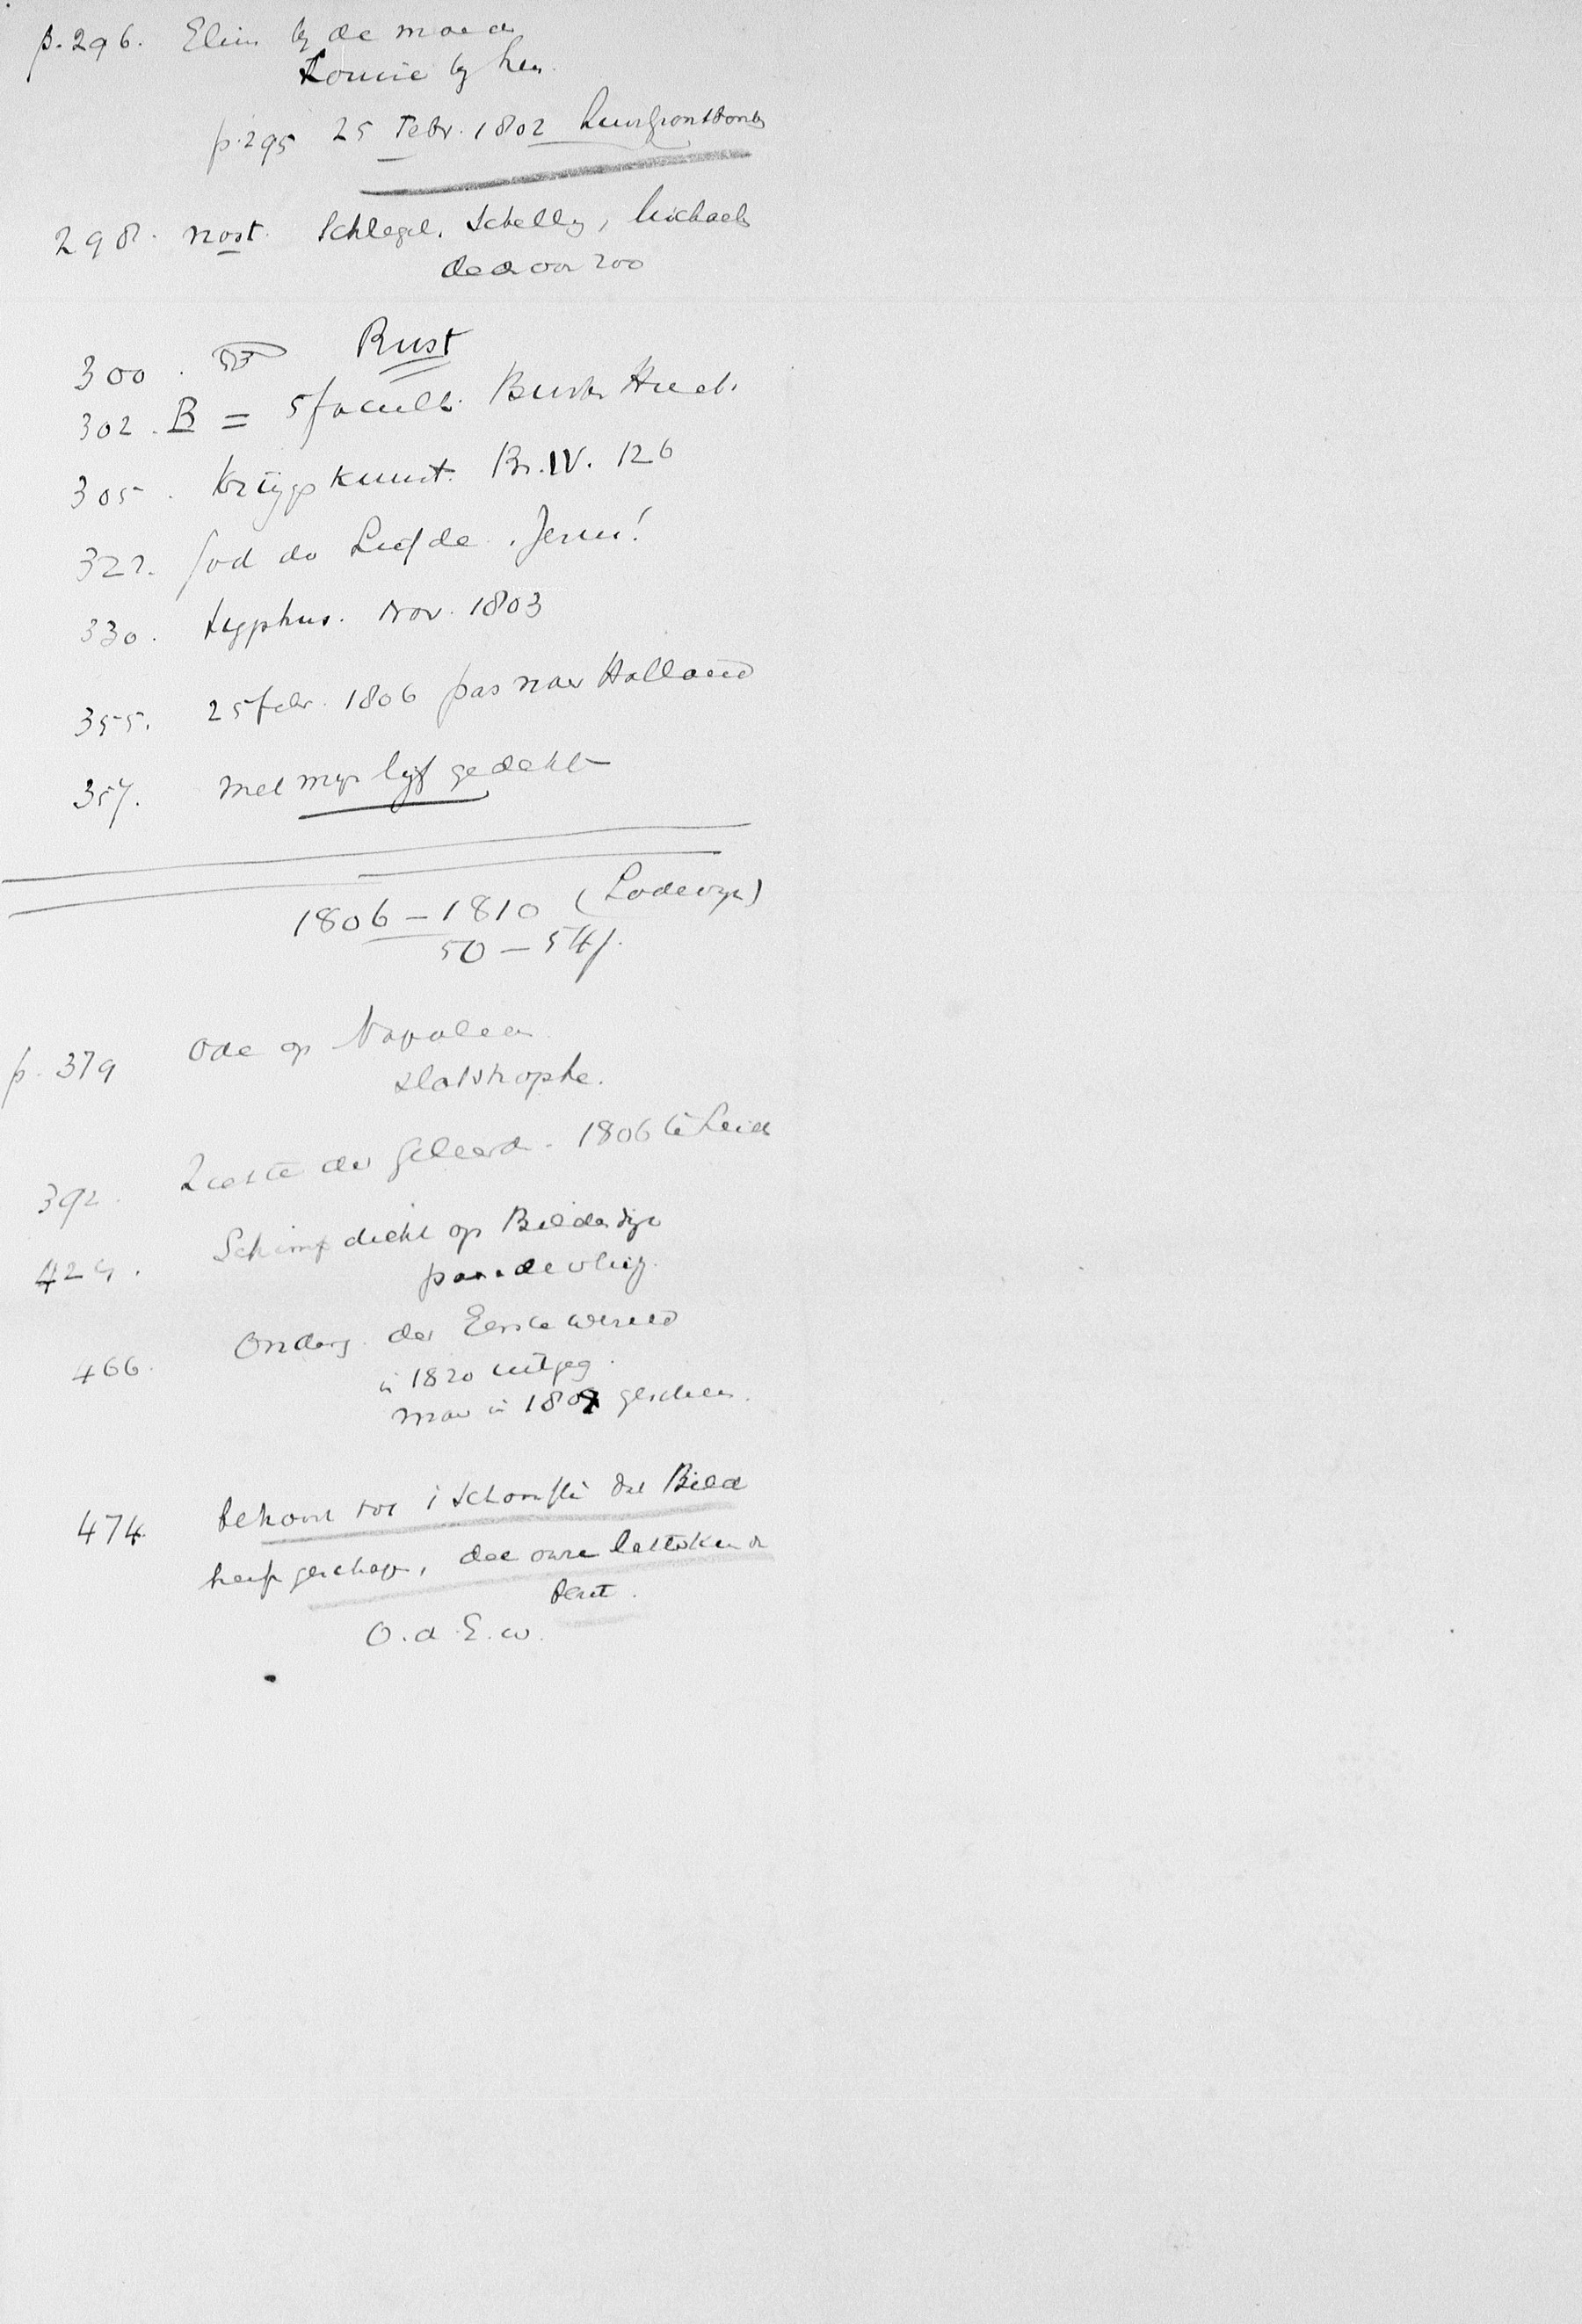 p. 296. Elius by de moeder
Louise by hem.
p. 295 25 Febr. 1802
298. nost. Schlegel, Schelling, Michaels
daarvoor 200
300. Rust
302. B = 5 facult. Busk. Huet.
305. Krijgskunst. Br. IV. 126
322. God der Liefde. Jesus!
330. typhus. Nov. 1803
355. 25 febr. 1806 pas naar Holland
357. met mijn lijf gedekt
1806 - 1810 (Lodewijk)
50 - 54 j.
p. 379 Ode op Napoleon
slotstrophe.
392. Ziekte der Geleerden. 1806 te Leiden
424. Schimpdicht op Bilderdijk
466. Onderg. der Eerste wereld
in 1820 uitgeg.
maar in 1809 geschreven.
474. behoort tot 't schoonste dat Bild
heeft geschapen, dat onze letterkunde
bezit.
O. d. E. w.